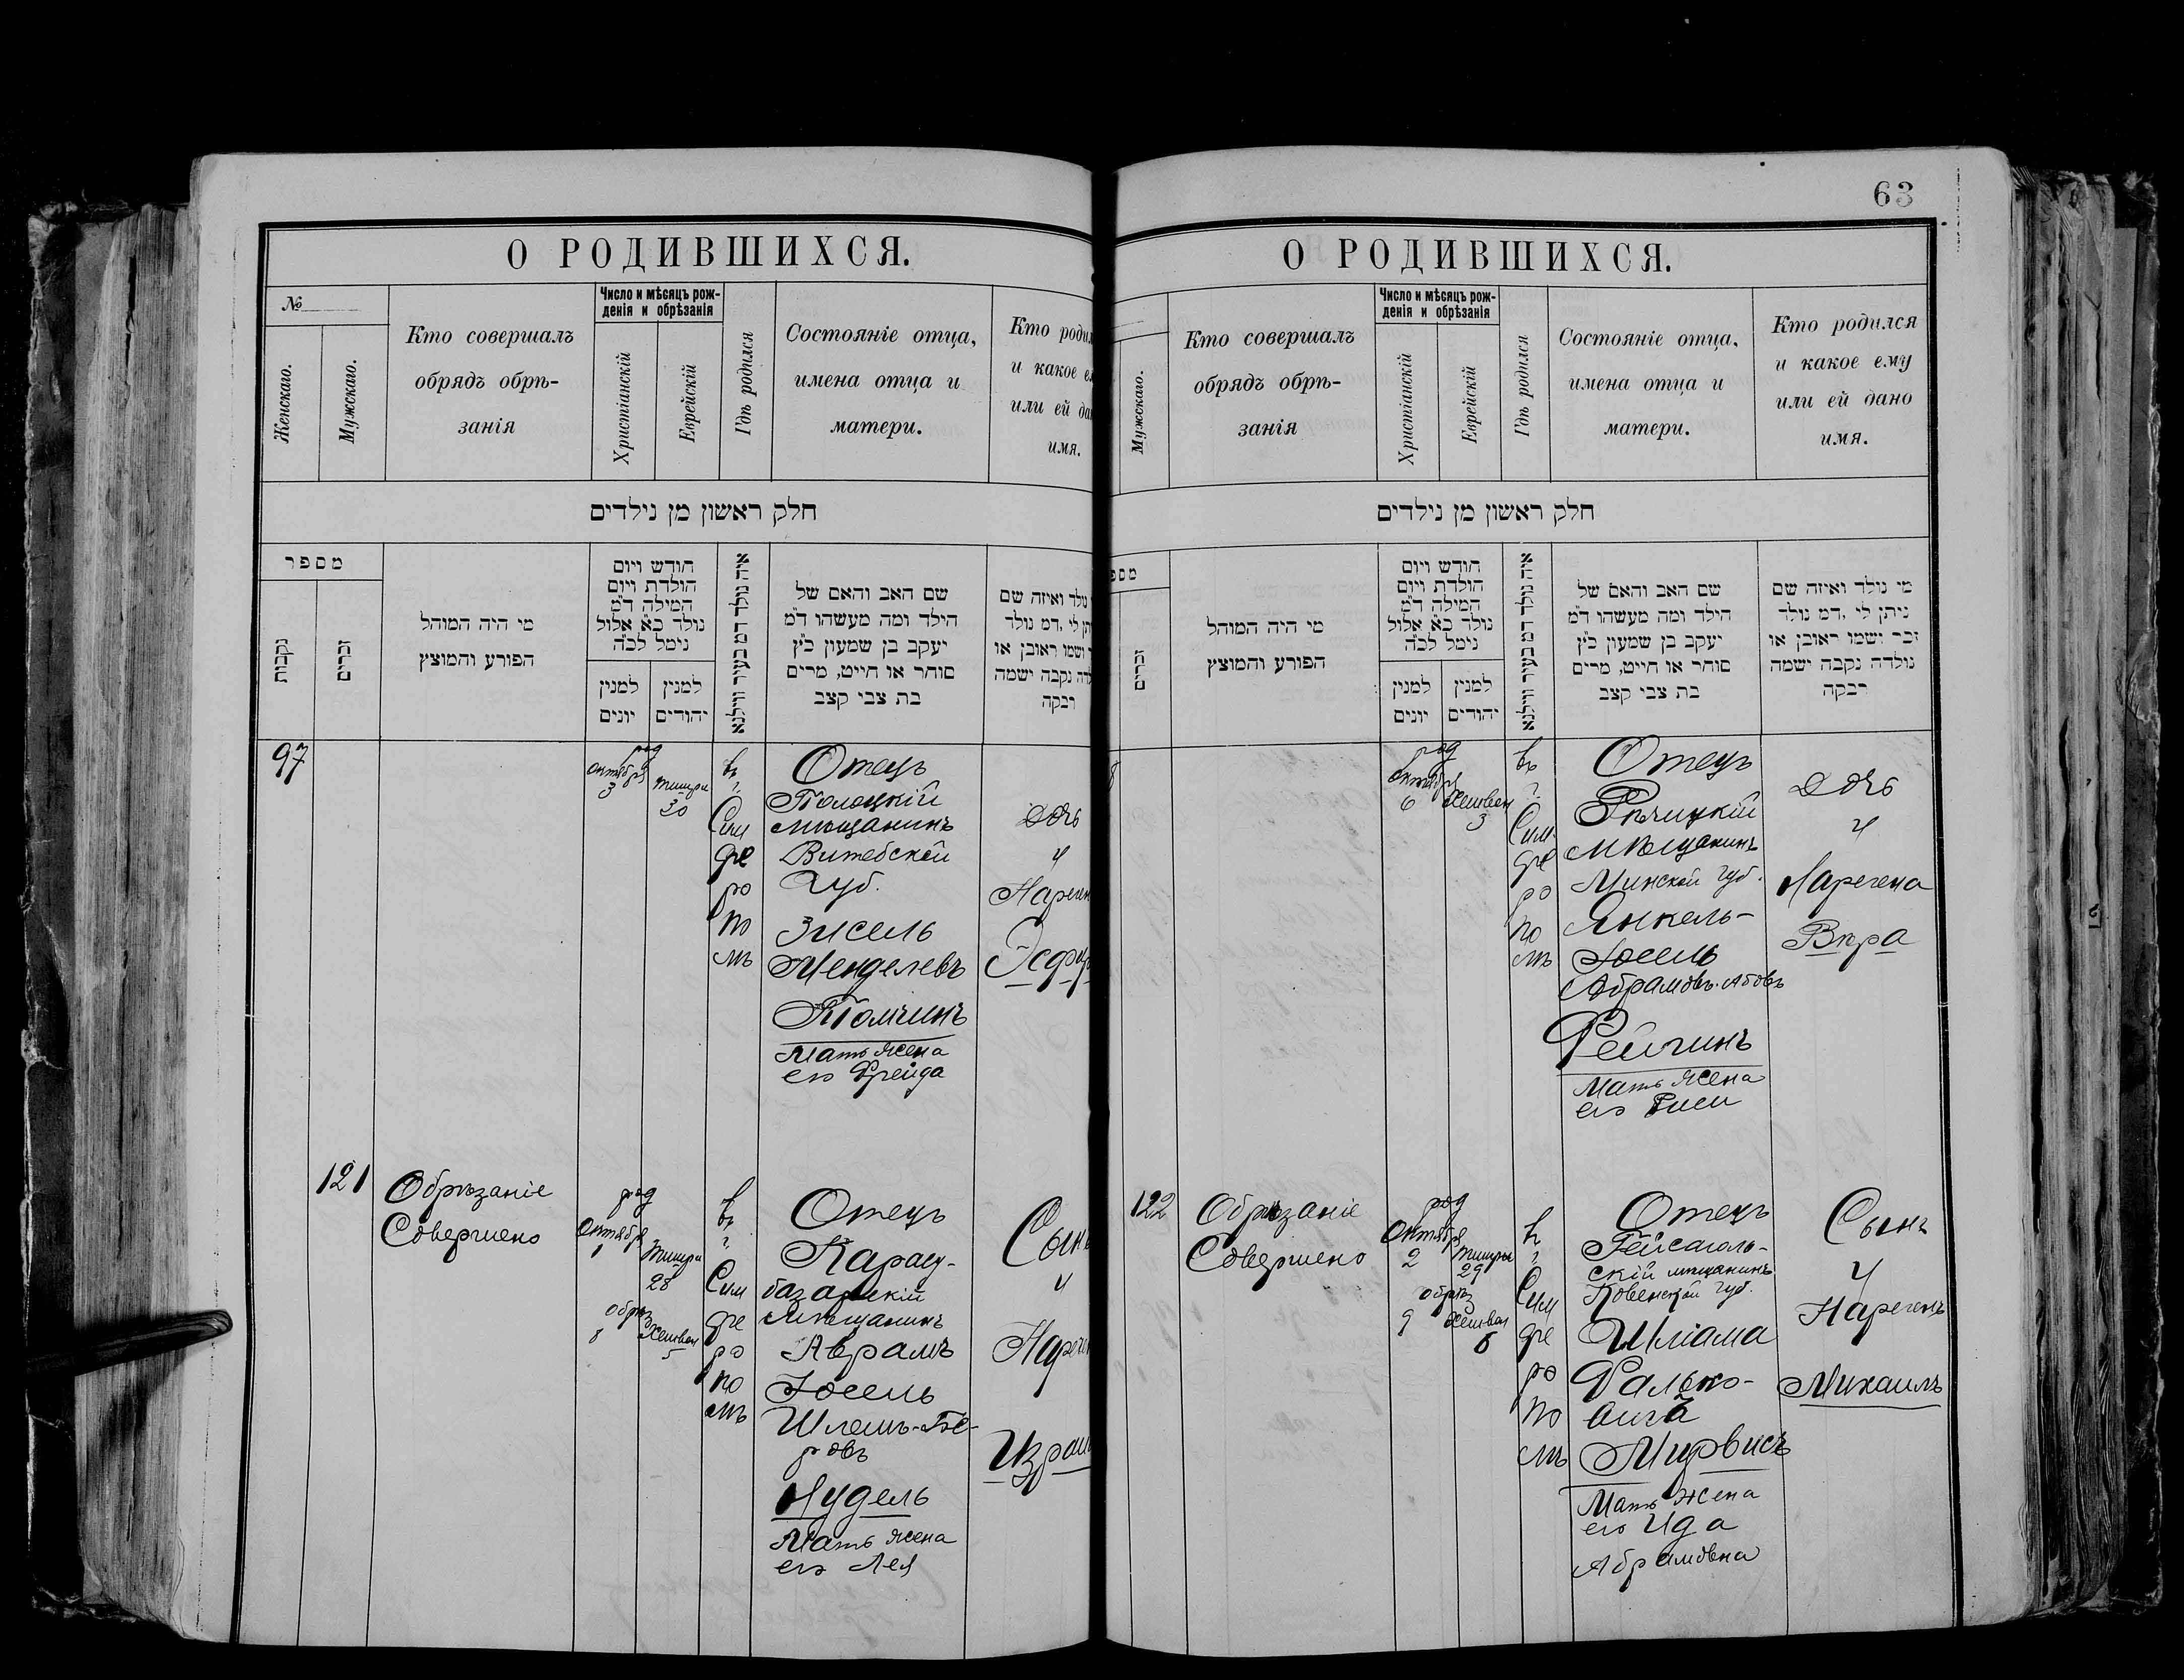 63
О РОДИВШИХСЯ.
№
Женскаго.
Мужскаго.
Кто совершалъ
обрядъ обрѣ-
занія
Число и мѣсяцъ рож-
денія и обрѣзанія
Христіанскій
Еврейскій
Гдѣ родился
Состояніе отца,
имена отца и
матери.
Кто роди
и какое е
или ей да
имя.
חלק ראשון מן נילדים
מספר
נקבות
זכרים
מי היה המוהל
הפורע והמוצץ
חודש ויום
הולדת ויום
המילה ד״מ
נולד כ״א אלול
נימל לכ״ה
למנין
יונים
למנין
יהודים
איה נולד דמ בעיר ווילנא
שם האב והאם של
הילד ומה מעשהו ד״מ
יעקב בן שמעון כ״ץ
סוחר או חייט, מרים
בת צבי קצב
נולד ואיזה שם
תן לי ,דמ נולד
ושמו ראובן או
לדה נקבה ישמה
רבקה
97
род
Октября
3
Тишри
30
въ
г.
Сим
фе
ро
по
лѣ
Отецъ
Полоцкій
мѣщанинъ
Витебской
Губ.
Зисель
Менделевъ
Толчинъ
Мать жена
его Фрейда
Дочь
и
Наречен
Эсфир
121
Обрѣзаніе
Совершено
род
Октября
1
Тишри
28
обрѣз
8
Хешван
5
въ
г.
Сим
фе
ро
по
лѣ
Отецъ
Карасу-
базарскій
мѣщанинъ
Аврамъ
Іосель
Шлемъ-Бе-
ровъ
Нудель
Мать жена
его Лея
Сынъ
и
Наречен
Израил
О РОДИВШИХСЯ.
Мужскаго.
Кто совершалъ
обрядъ обрѣ-
занія
Число и мѣсяцъ рож-
денія и обрѣзанія
Христіанскій
Еврейскій
Гдѣ родился
Состояніе отца,
имена отца и
матери.
Кто родился
и какое ему
или ей дано
имя.
חלק ראשון מן נילדים
מספ
זכרים
מי היה המוהל
הפורע והמוצץ
חודש ויום
הולדת ויום
המילה ד״מ
נולד כ״א אלול
נימל לכ״ה
למנין
יונים
למנין
יהודים
איה נולד דמ בעיר ווילנא
שם האב והאם של
הילד ומה מעשהו ד״מ
יעקב בן שמעון כ״ץ
סוחר או חייט, מרים
בת צבי קצב
מי נולד ואיזה שם
ניתן לי ,דמ נולד
זכר ישמו ראובן או
נולדה נקבה ישמה
רבקה
8
род
Октября
6
Хешван
3
въ
г.
Сим
фе
ро
по
лѣ
Отецъ
Рѣчицкій
мѣщанинъ
Минской губ.
Янкель-
Іосель
Абрамовъ-Абовъ
Рейчинъ
Мать жена
его Риси
Дочь
и
Наречена
Вѣра
122
Обрѣзаніе
Совершено
род
Октября
2
Тишри
29
обрѣз
9
Хешван
6
въ
г.
Сим
фе
ро
по
лѣ
Отецъ
Гейсаголь-
скій мѣщанинъ
Ковенской губ.
Шліама
Фалько-
вичъ
Мирвисъ
Мать жена
его Ида
Абрамовна
Сынъ
и
Нареченъ
Михаилъ